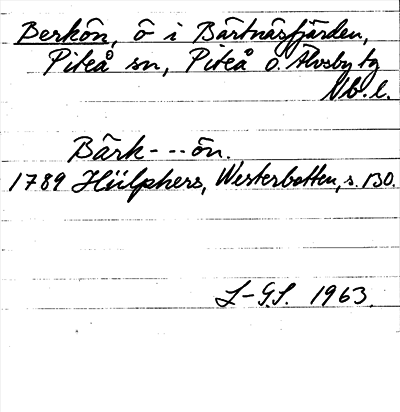 Berkön, ö i Bärtnäsfjärden,
Piteå sn, Piteå o. Älvsby tg
Nb. l.
Bärk---ön.
1789 Hülphers, Westerbotten, s. 130.
L-G.S. 1963.